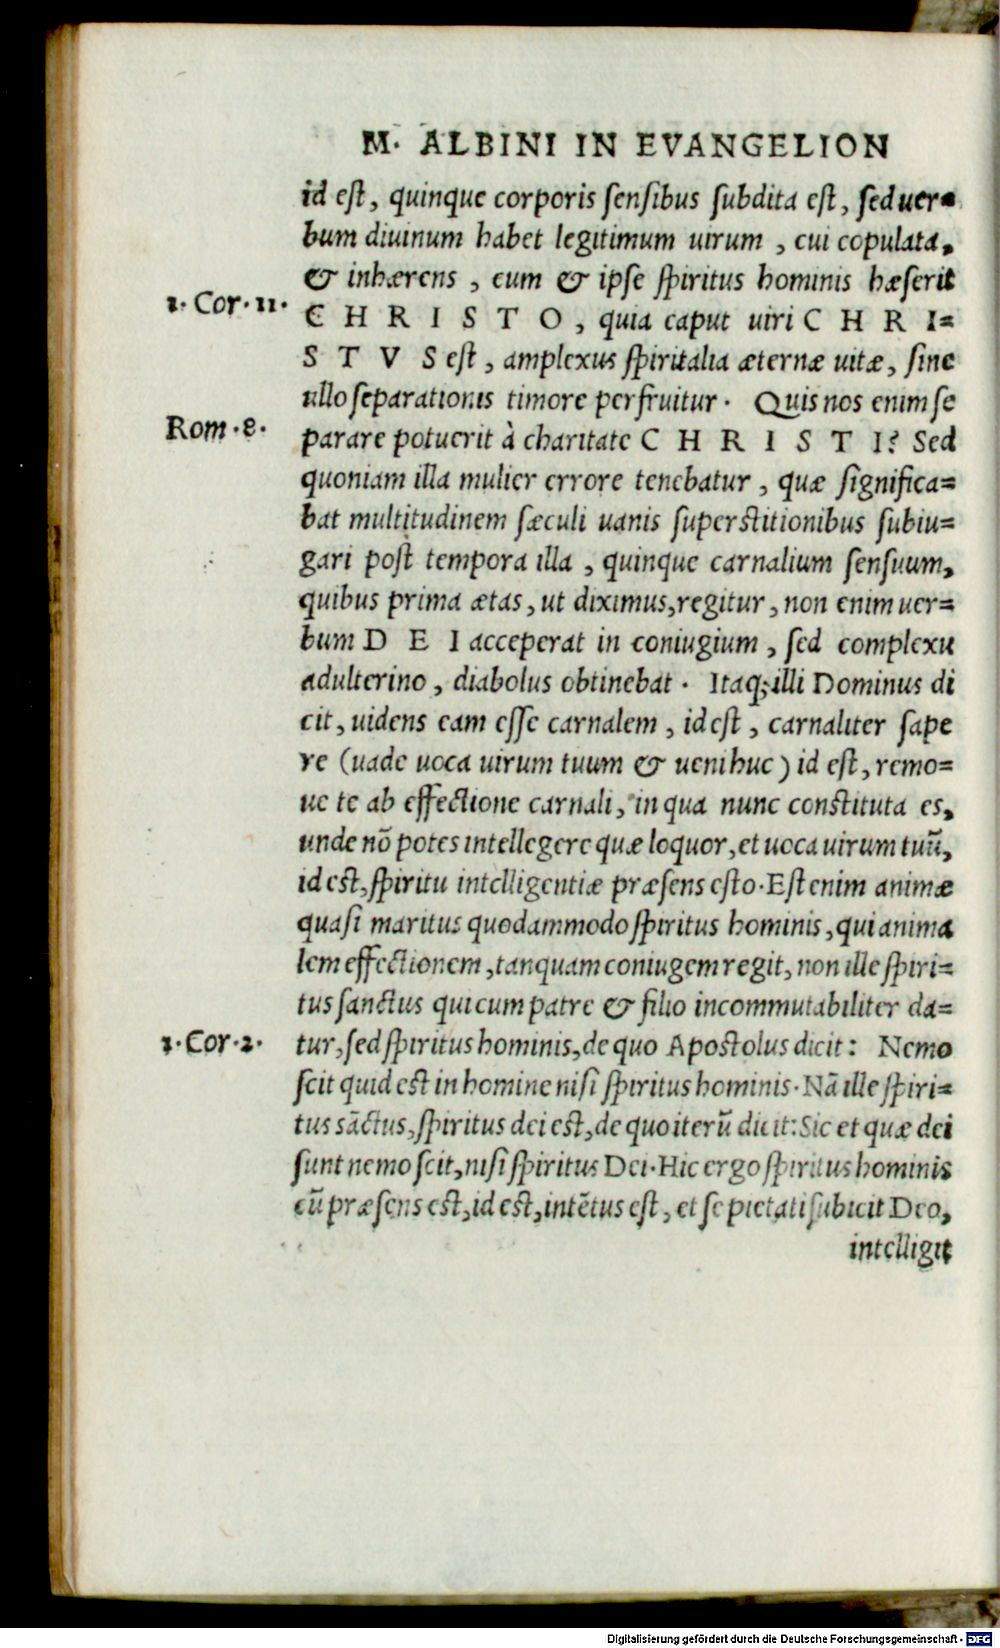 M. ALBINI IN EVANGELION
id est, quinque corporis sensibus subdita est, sed uer=
bum diuinum habet legitimum uirum, cui copulata,
& inhærens, cum & ipse spiritus hominis hæserit
1. Cor. 11.
CHRISTO, quia caput uiri CHRI=
STVS est, amplexus spiritalia æternæ uitæ, sine
ullo separationis timore perfruitur. Quis nos enim se
Rom. 8.
parare potuerit à charitate CHRISTI? Sed
quoniam illa mulier errore tenebatur, quæ significa=
bat multitudinem sæculi uanis superstitionibus subiu=
gari post tempora illa, quinque carnalium sensuum,
quibus prima ætas, ut diximus, regitur, non enim uer=
bum DEI acceperat in coniugium, sed complexu
adulterino, diabolus obtinebat. Itaq; illi Dominus di
cit, uidens eam esse carnalem, id est, carnaliter sape
re (uade uoca uirum tuum & ueni huc) id est, remo=
ue te ab effectione carnali, in qua nunc constituta es,
unde nō potes intellegere quæ loquor, et uoca uirum tuū,
id est, spiritu intelligentiæ præsens esto. Est enim animæ
quasi maritus quodammodo spiritus hominis, qui anima
lem effectionem, tanquam coniugem regit, non ille spiri=
tus sanctus qui cum patre & filio incommutabiliter da=
1. Cor. 2.
tur, sed spiritus hominis, de quo Apostolus dicit: Nemo
scit quid est in homine nisi spiritus hominis. Nā ille spiri=
tus sāctus, spiritus dei est, de quo iterū dicit: Sic et quæ dei
sunt nemo scit, nisi spiritus Dei. Hic ergo spiritus hominis
cū præsens est, id est, intētus est, et se pietati subicit Deo,
intelligit
Digitalisierung gefördert durch die Deutsche Forschungsgemeinschaft - DFG